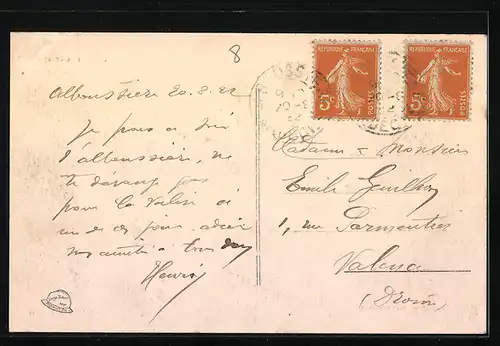 8
Alboussière 20.8.22
Je pars ce soir
d'alboussière, ne
te dérange pas
pour la valise ai
un de ces jours. adieu
mes amitiés à tous deux
Henri
RÉPUBLIQUE FRANÇAISE
5c POSTES
RÉPUBLIQUE FRANÇAISE
5c POSTES
Madame & Monsieur
Emile Guilhon
1, rue Parmentier
Valence
(Drôme)